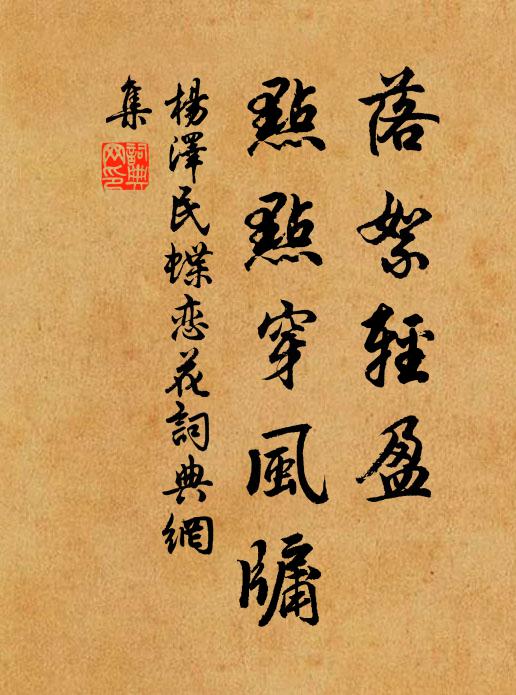 落絮輕盈
點點穿風牖
楊澤民蝶恋花詞典網
集
詞典
网印